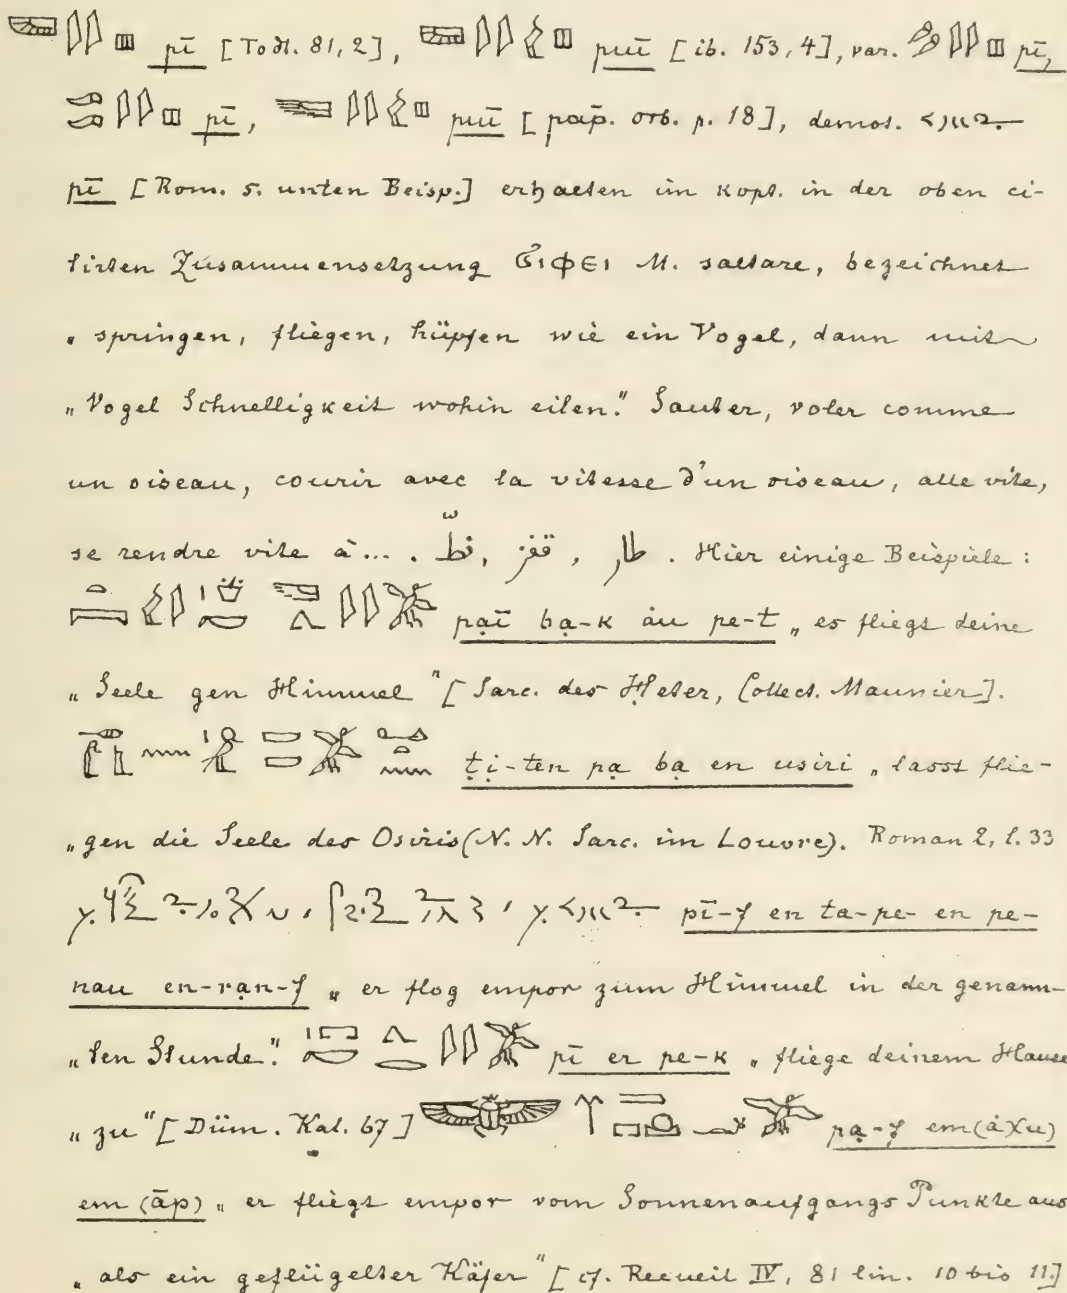 pī [Todt. 81, 2], puī [ib. 153, 4], var. pī,
pī, puī [pap. orb. p. 18], demot.
pī [Rom. s. unten Beisp.] erhalten im kopt. in der oben ci-
tirten Zusammensetzung Ϭⲓⲫⲉⲓ M. saltare, bezeichnet
„springen, fliegen, hüpfen wie ein Vogel, dann mit
„Vogel Schnelligkeit wohin eilen.“ Sauter, voler comme
un oiseau, courir avec la vitesse d'un oiseau, alle vite,
se rendre vite à... . نطّ, قفز, طار . Hier einige Beispiele:
pạī bạ-k àu pe-t „es fliegt deine
„Seele gen Himmel“ [Sarc. des Ḥeter, Collect. Maunier].
ṭị-ten pạ bạ en usiri „lasst flie-
„gen die Seele des Osiris (N. N. Sarc. im Louvre). Roman 2, l. 33
pī-f en ta-pe- en pe-
nau en-rạn-f „er flog empor zum Himmel in der genann-
„ten Stunde“. pī er pe-k „fliege deinem Hause
„zu“ [Düm. Kal. 67] pạ-f em (àχu)
em (āp) „er fliegt empor vom Sonnenaufgangs Punkte aus
„als ein geflügelter Käfer“ [cf. Recueil IV, 81 lin. 10 bis 11.]